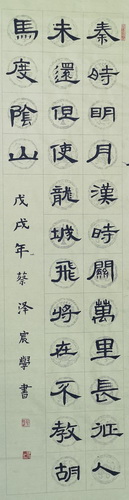 秦時明月漢時關萬里長征人
未還但使龍城飛將在不教胡
馬度陰山
戊戌年蔡泽宸學書